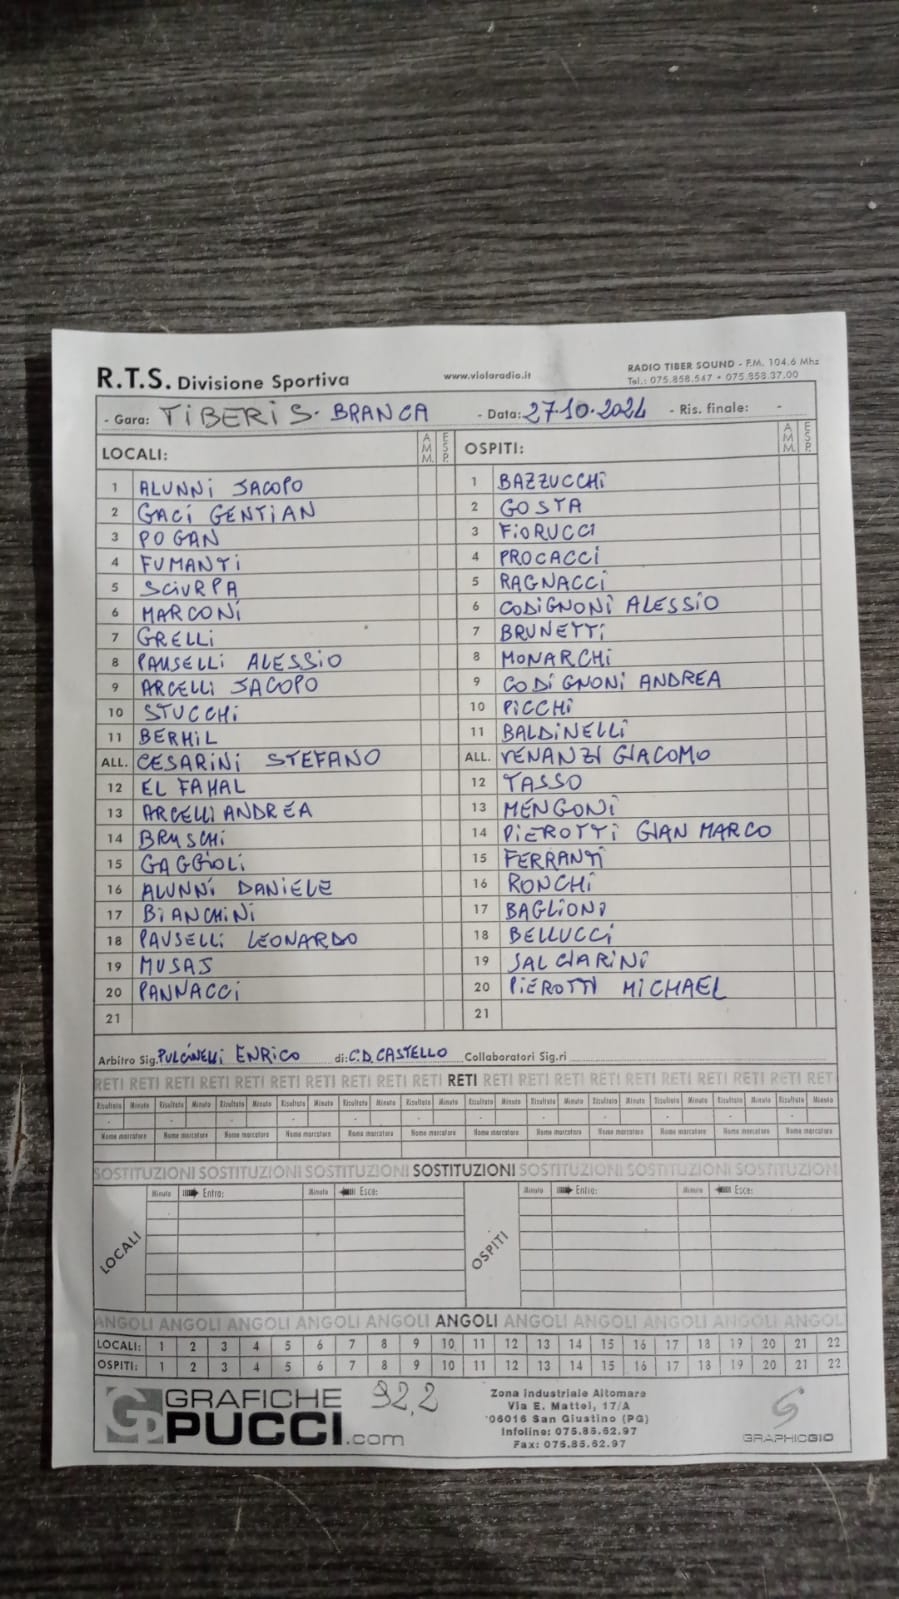 R.T.S. Divisione Sportiva www.violaradio.it RADIO TIBER SOUND - F.M. 104.6 Mhz
Tel.: 075.858.547 • 075.858.37.00
- Gara: TIBERIS - BRANCA - Data: 27-10-2024 - Ris. finale: -
LOCALI: AMM. ESP. OSPITI: AMM. ESP.
1 ALUNNI JACOPO 1 BAZZUCCHI
2 GACI GENTIAN 2 GOSTA
3 POGAN 3 FIORUCCI
4 FUMANTI 4 PROCACCI
5 SCIURPA 5 RAGNACCI
6 MARCONI 6 CODIGNONI ALESSIO
7 GRELLI 7 BRUNETTI
8 PAUSELLI ALESSIO 8 MONARCHI
9 ARCELLI JACOPO 9 CODIGNONI ANDREA
10 STUCCHI 10 PICCHI
11 BERHIL 11 BALDINELLI
ALL. CESARINI STEFANO ALL. VENANZI GIACOMO
12 EL FAHAL 12 TASSO
13 ARCELLI ANDREA 13 MENGONI
14 BRUSCHI 14 PIEROTTI GIAN MARCO
15 GAGGIOLI 15 FERRANTI
16 ALUNNI DANIELE 16 RONCHI
17 BIANCHINI 17 BAGLIONI
18 PAUSELLI LEONARDO 18 BELLUCCI
19 MUSAJ 19 SALCIARINI
20 PANNACCI 20 PIEROTTI MICHAEL
21 21
Arbitro Sig. PULCINELLI ENRICO di: C.D. CASTELLO Collaboratori Sig.ri
RETI RETI RETI RETI RETI RETI RETI RETI RETI RETI RETI RETI RETI RETI RETI RETI RETI RETI RETI RETI RET
Risultato Minuto Risultato Minuto Risultato Minuto Risultato Minuto Risultato Minuto Risultato Minuto Risultato Minuto Risultato Minuto Risultato Minuto Risultato Minuto Risultato Minuto Risultato Minuto
Nome marcatore Nome marcatore Nome marcatore Nome marcatore Nome marcatore Nome marcatore Nome marcatore Nome marcatore Nome marcatore Nome marcatore Nome marcatore Nome marcatore
SOSTITUZIONI SOSTITUZIONI SOSTITUZIONI SOSTITUZIONI SOSTITUZIONI SOSTITUZIONI SOSTITUZION
Minuto Entra: Minuto Esce: Minuto Entra: Minuto Esce:
LOCALI OSPITI
ANGOLI ANGOLI ANGOLI ANGOLI ANGOLI ANGOLI ANGOLI ANGOLI ANGOLI ANGOLI ANGOL
LOCALI: 1 2 3 4 5 6 7 8 9 10 11 12 13 14 15 16 17 18 19 20 21 22
OSPITI: 1 2 3 4 5 6 7 8 9 10 11 12 13 14 15 16 17 18 19 20 21 22
GRAFICHE
PUCCI.com
92,2
Zona Industriale Altomare
Via E. Mattei, 17/A
06016 San Giustino (PG)
Infoline: 075.85.62.97
Fax: 075.85.62.97
GRAPHICGIO